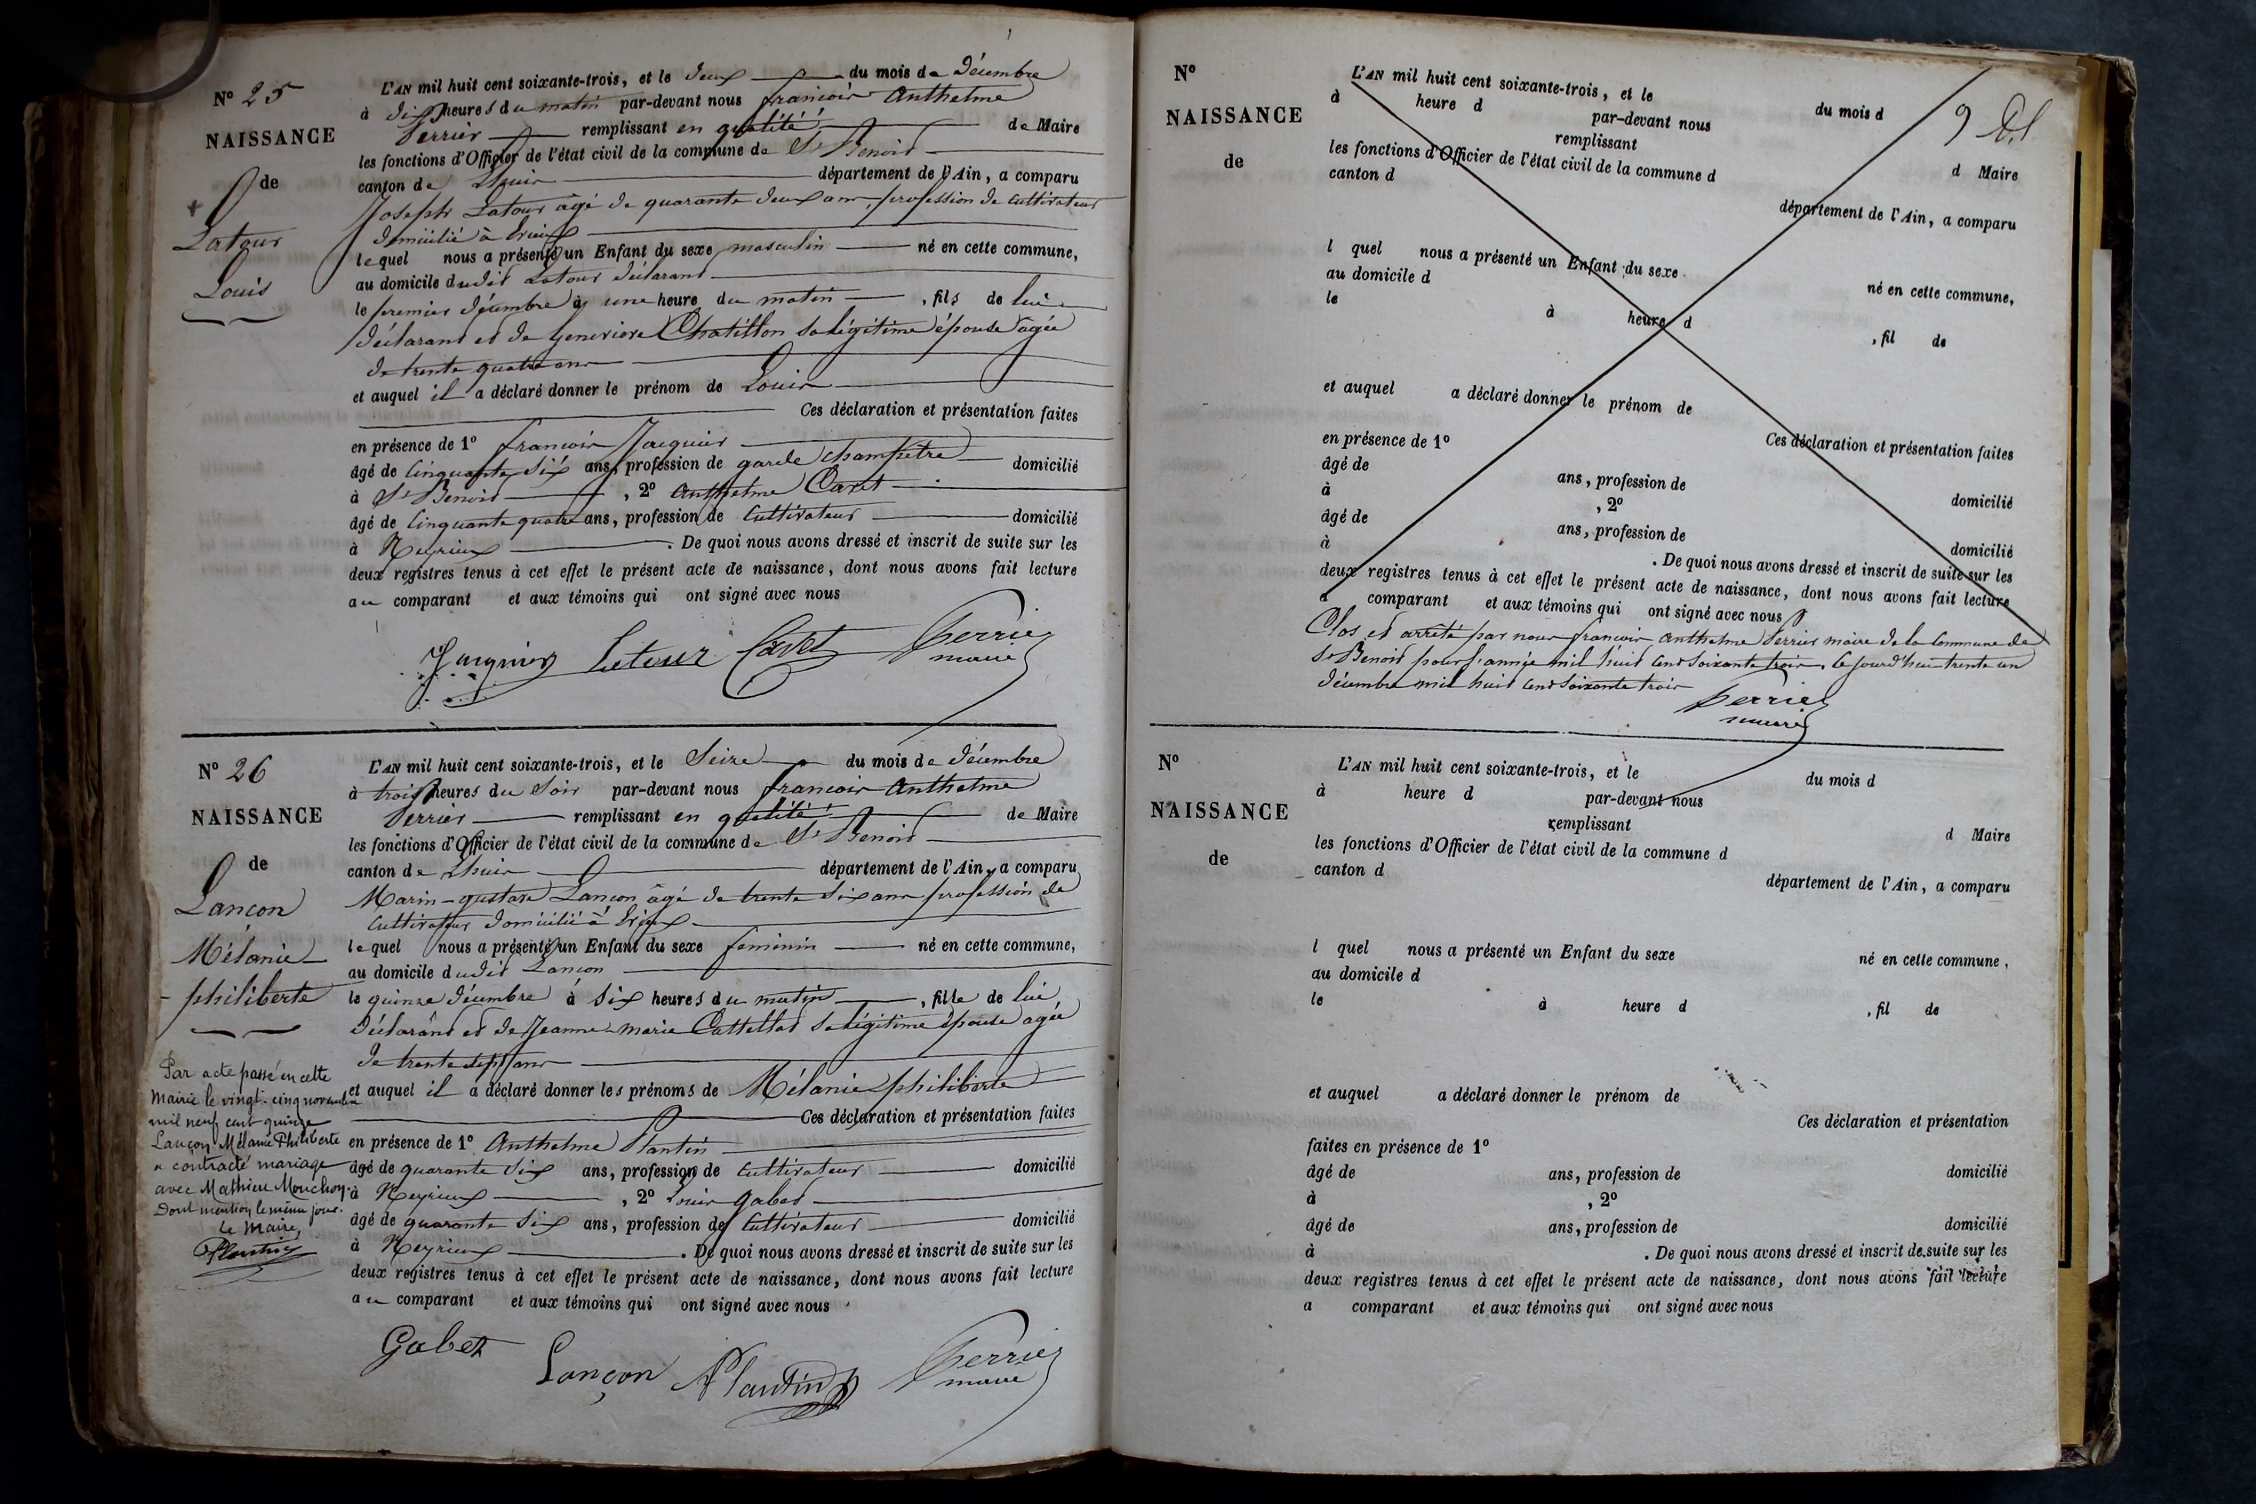 N° 25
NAISSANCE
de
Latour
Louis
L'AN mil huit cent soixante-trois, et le deux du mois de Décembre
à dix heures du matin par-devant nous françois Anthelme
Perrier remplissant en qualité de Maire
les fonctions d'Officier de l'état civil de la commune de St Benoit
canton de Lhuis département de l'Ain, a comparu
Joseph Latour âgé de quarante deux ans, profession de cultivateur
domicilié à
lequel nous a présenté un Enfant du sexe masculin né en cette commune,
au domicile dudit Latour déclarant
le premier décembre à une heure du matin, fils de lui
déclarant et de Genevieve Chatillon sa légitime épouse âgée
de trente quatre ans
et auquel il a déclaré donner le prénom de Louis
Ces déclaration et présentation faites
en présence de 1° françois Jacquier
âgé de cinquante six ans, profession de garde champêtre domicilié
à St Benoit, 2° Anthelme Cadet
âgé de cinquante quatre ans, profession de cultivateur domicilié
à Neyrieux. De quoi nous avons dressé et inscrit de suite sur les
deux registres tenus à cet effet le présent acte de naissance, dont nous avons fait lecture
au comparant et aux témoins qui ont signé avec nous
Jacquier Latour Cadet Perrier
maire
N° 26
NAISSANCE
de
Lançon
Mélanie
philiberte
L'AN mil huit cent soixante-trois, et le Seize du mois de Décembre
à trois heures du Soir par-devant nous françois Anthelme
Perrier remplissant en qualité de Maire
les fonctions d'Officier de l'état civil de la commune de St Benoit
canton de Lhuis département de l'Ain, a comparu
Marin-gustave Lançon âgé de trente six ans profession de
cultivateur domicilié à
lequel nous a présenté un Enfant du sexe feminin né en cette commune,
au domicile dudit Lançon
le quinze décembre à six heures du matin, fille de lui
déclarant et de Jeanne-marie Cattellad sa légitime épouse âgée
de trente sept ans
et auquel il a déclaré donner les prénoms de Mélanie philiberte
Ces déclaration et présentation faites
en présence de 1° Anthelme Plantin
âgé de quarante six ans, profession de cultivateur domicilié
à Neyrieux, 2° Louis Gabet
âgé de quarante six ans, profession de cultivateur domicilié
à Neyrieux. De quoi nous avons dressé et inscrit de suite sur les
deux registres tenus à cet effet le présent acte de naissance, dont nous avons fait lecture
au comparant et aux témoins qui ont signé avec nous
Gabet Lançon Plantin Perrier
maire
Par acte passé en cette
Mairie le vingt-cinq novembre
mil neuf cent quinze
Lançon Mélanie Philiberte
a contracté mariage
avec Mathieu Mouchon.
Dont mention le même jour.
Le Maire,
Plantin
N°
NAISSANCE
de
L'AN mil huit cent soixante-trois, et le du mois d
à heure d par-devant nous
remplissant d Maire
les fonctions d'Officier de l'état civil de la commune d
canton d département de l'Ain, a comparu
l quel nous a présenté un Enfant du sexe né en cette commune,
au domicile d
le à heure d, fil de
et auquel a déclaré donner le prénom de
Ces déclaration et présentation faites
en présence de 1°
âgé de ans, profession de domicilié
à, 2°
âgé de ans, profession de domicilié
à. De quoi nous avons dressé et inscrit de suite sur les
deux registres tenus à cet effet le présent acte de naissance, dont nous avons fait lecture
a comparant et aux témoins qui ont signé avec nous
Clos et arrêté par nous françois Anthelme Perrier maire de la Commune de
St Benoit pour l'année mil huit cent soixante trois, ce jourd'hui trente un
décembre mil huit cent soixante trois
Perrier
maire
N°
NAISSANCE
de
L'AN mil huit cent soixante-trois, et le du mois d
à heure d par-devant nous
remplissant d Maire
les fonctions d'Officier de l'état civil de la commune d
canton d département de l'Ain, a comparu
l quel nous a présenté un Enfant du sexe né en cette commune,
au domicile d
le à heure d, fil de
et auquel a déclaré donner le prénom de
Ces déclaration et présentation
faites en présence de 1°
âgé de ans, profession de domicilié
à, 2°
âgé de ans, profession de domicilié
à. De quoi nous avons dressé et inscrit de suite sur les
deux registres tenus à cet effet le présent acte de naissance, dont nous avons fait lecture
a comparant et aux témoins qui ont signé avec nous